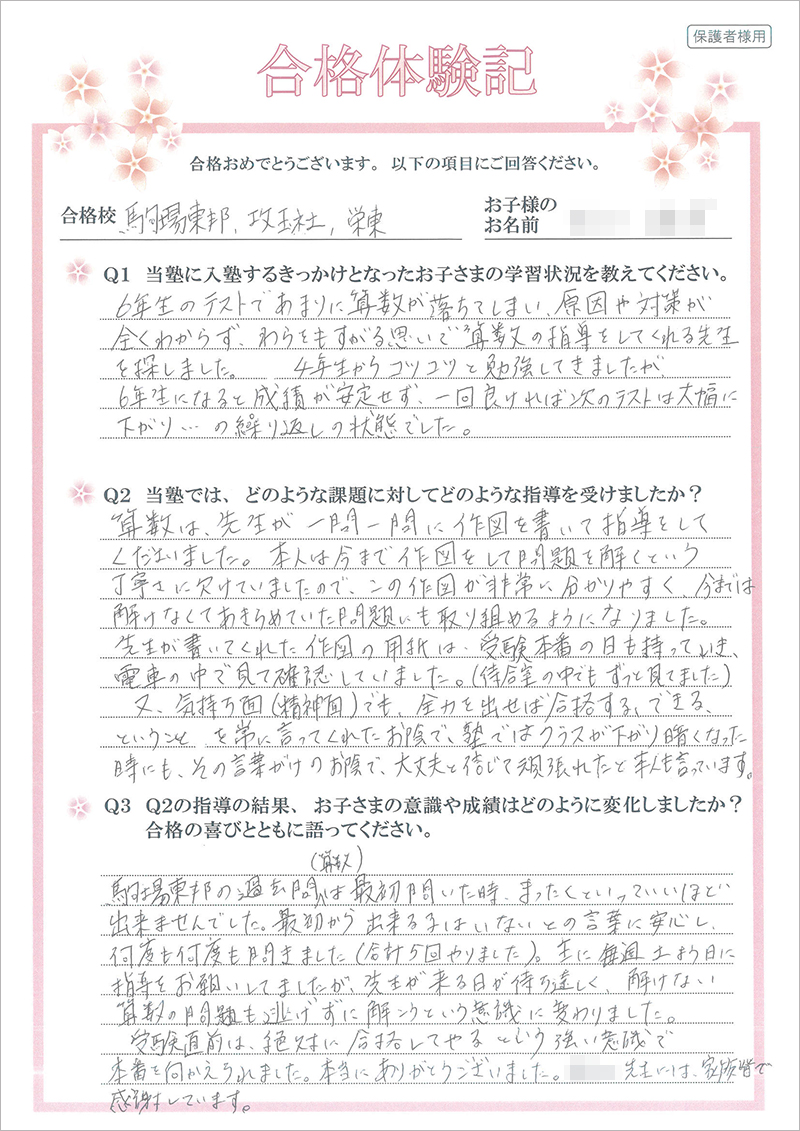 保護者様用
合格体験記
合格おめでとうございます。以下の項目にご回答ください。
合格校 駒場東邦, 攻玉社, 栄東
お子様の
お名前
Q1 当塾に入塾するきっかけとなったお子さまの学習状況を教えてください。
6年生のテストであまりに算数が落ちてしまい、原因や対策が
全くわからず、わらをもすがる思いで算数の指導をしてくれる先生
を探しました。 4年生からコツコツと勉強してきましたが、
6年生になると成績が安定せず、一回良ければ次のテストは大幅に
下がり…の繰り返しの状態でした。
Q2 当塾では、どのような課題に対してどのような指導を受けましたか？
算数は、先生が一問一問に作図を書いて指導をして
くださいました。本人は今まで作図をして問題を解くという
丁寧さに欠けていましたので、この作図が非常に分かりやすく、今までは
解けなくてあきらめていた問題にも取り組めるようになりました。
先生が書いてくれた作図の用紙は、受験本番の日も持っていき、
電車の中で見て確認していました。(待合室の中でもずっと見てました)
又、気持ち面(精神面)でも、全力を出せば合格する、できる、
ということ を常に言ってくれたお陰で、塾ではクラスが下がり暗くなった
時にも、その言葉がけのお陰で、大丈夫と信じて頑張れたと本人も言っています。
Q3 Q2の指導の結果、お子さまの意識や成績はどのように変化しましたか？
合格の喜びとともに語ってください。
(算数)
駒場東邦の過去問は最初開いた時、まったくといっていいほど
出来ませんでした。最初から出来る子はいないとの言葉に安心し、
何度も何度も聞きました(合計5回やりました)。主に毎週土よう日に
指導をお願いしてましたが、先生が来る日が待ち遠しく、解けない
算数の問題も逃げずに解こうという意識に変わりました。
受験直前は、絶対に合格してやるという強い意識で
本番を向かえられました。本当にありがとうございました。 先生には、家族皆で
感謝しています。